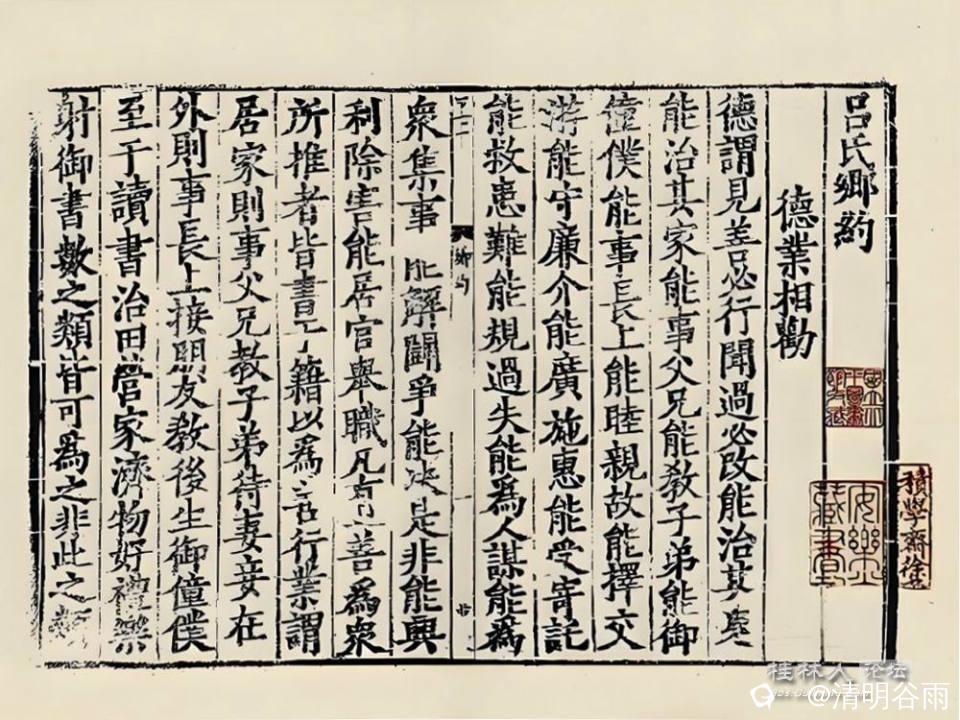 呂氏鄉約
德業相勸
德謂見善必行聞過必改能治其身
能治其家能事父兄能教子弟能御
僮僕能事長上能睦親故能擇交
游能守廉介能廣施惠能受寄託
能救患難能規過失能爲人謀能爲
鄉約
一
衆集事能解鬭爭能決是非能興
利除害能居官舉職凡有一善爲衆
所推者皆書于籍以爲善行業謂
居家則事父兄教子弟待妻妾在
外則事長上接朋友教後生御僮僕
至于讀書治田營家濟物好禮樂
射御書數之類皆可爲之非此之類
積學齋徐
桂林人论坛
@清明谷雨